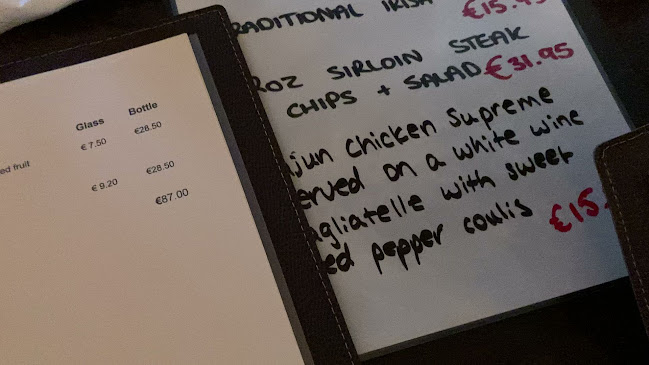 Glass Bottle
ed fruit € 7.50 €28.50
€ 9.20 €28.50
€87.00
RADITIONAL IRISH €15.95
ROZ SIRLOIN STEAK
CHIPS + SALAD €31.95
jun chicken supreme
erved on a white wine
agliatelle with sweet
ed pepper coulis €15.